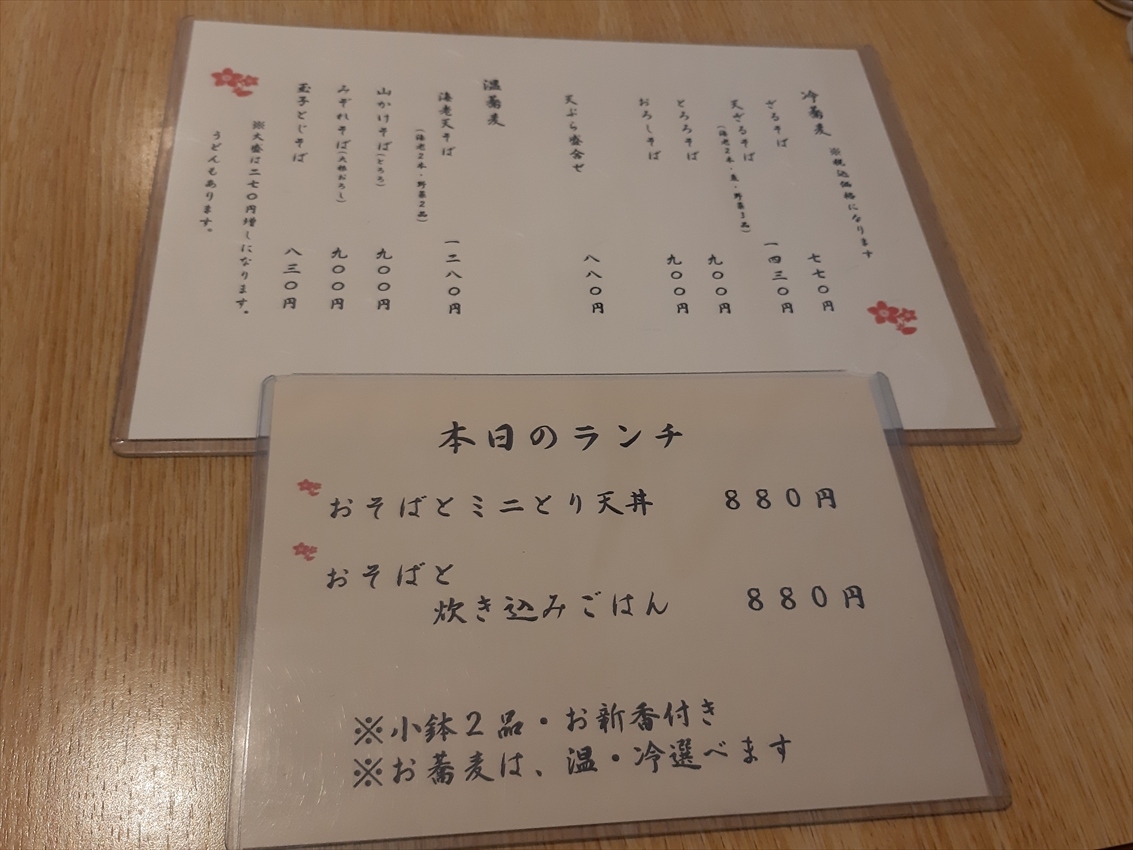 冷蕎麦 ※税込価格になります
ざるそば 七七〇円
天ざるそば 一四三〇円
(海老2本・魚・野菜3品)
とろろそば 九〇〇円
おろしそば 九〇〇円
天ぷら盛合せ 八八〇円
温蕎麦
海老天そば 一二八〇円
(海老2本・野菜2品)
山かけそば(とろろ) 九〇〇円
みぞれそば(大根おろし) 九〇〇円
玉子とじそば 八三〇円
※大盛は二七〇円増しになります。
うどんもあります。
本日のランチ
おそばとミニとり天丼 880円
おそばと
炊き込みごはん 880円
※小鉢2品・お新香付き
※お蕎麦は、温・冷選べます